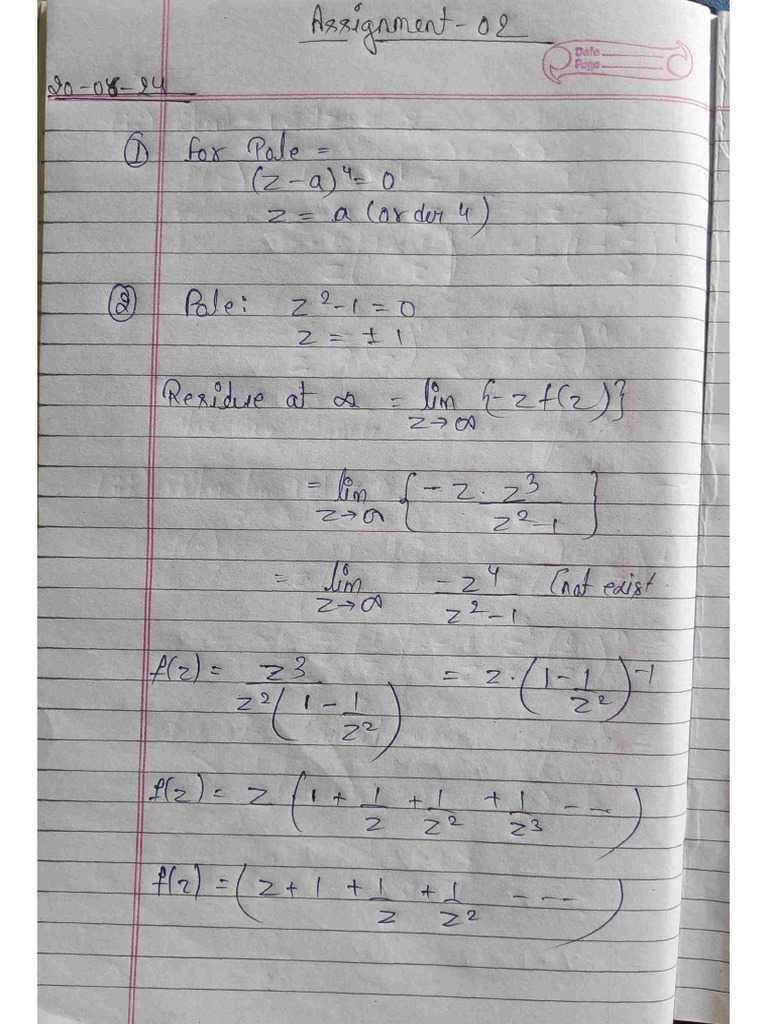 Assignment - 02
Date
Page
20-08-24
① for Pole =
(z - a)⁴ = 0
z = a (order 4)
② Pole: z² - 1 = 0
z = ± 1
Residue at ∞ = lim z→∞ {-z f(z)}
= lim z→∞ { -z · z³ / z² - 1 }
= lim z→∞ -z⁴ / z² - 1 (not exist
f(z) = z³ / z² (1 - 1/z²) = z · (1 - 1/z²)⁻¹
f(z) = z (1 + 1/z + 1/z² + 1/z³ - - --)
f(z) = (z + 1 + 1/z + 1/z² - - --)